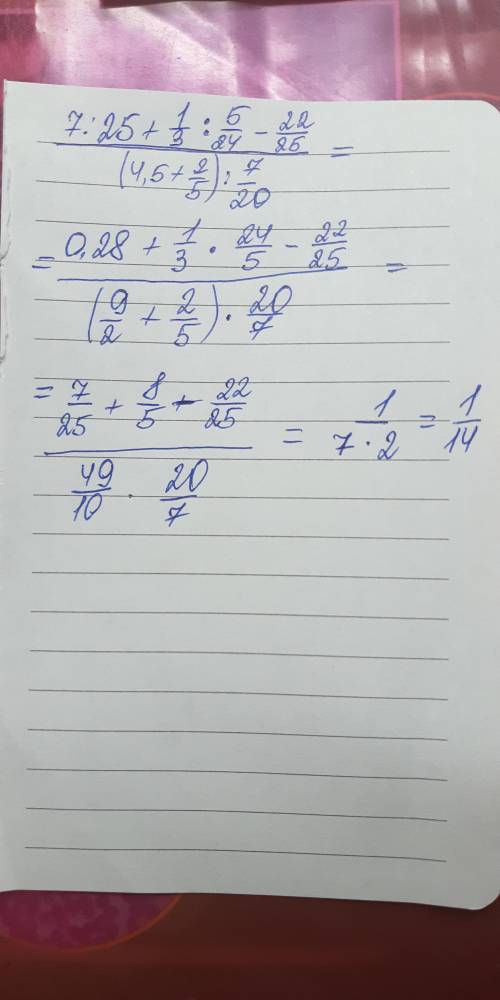 7:25 + 1/3 : 5/24 - 22/25 =
(4,5 + 2/5) : 7/20
= 0,28 + 1/3 · 24/5 - 22/25 =
(9/2 + 2/5) · 20/7
= 7/25 + 8/5 - 22/25 = 1/7·2 = 1/14
49/10 · 20/7